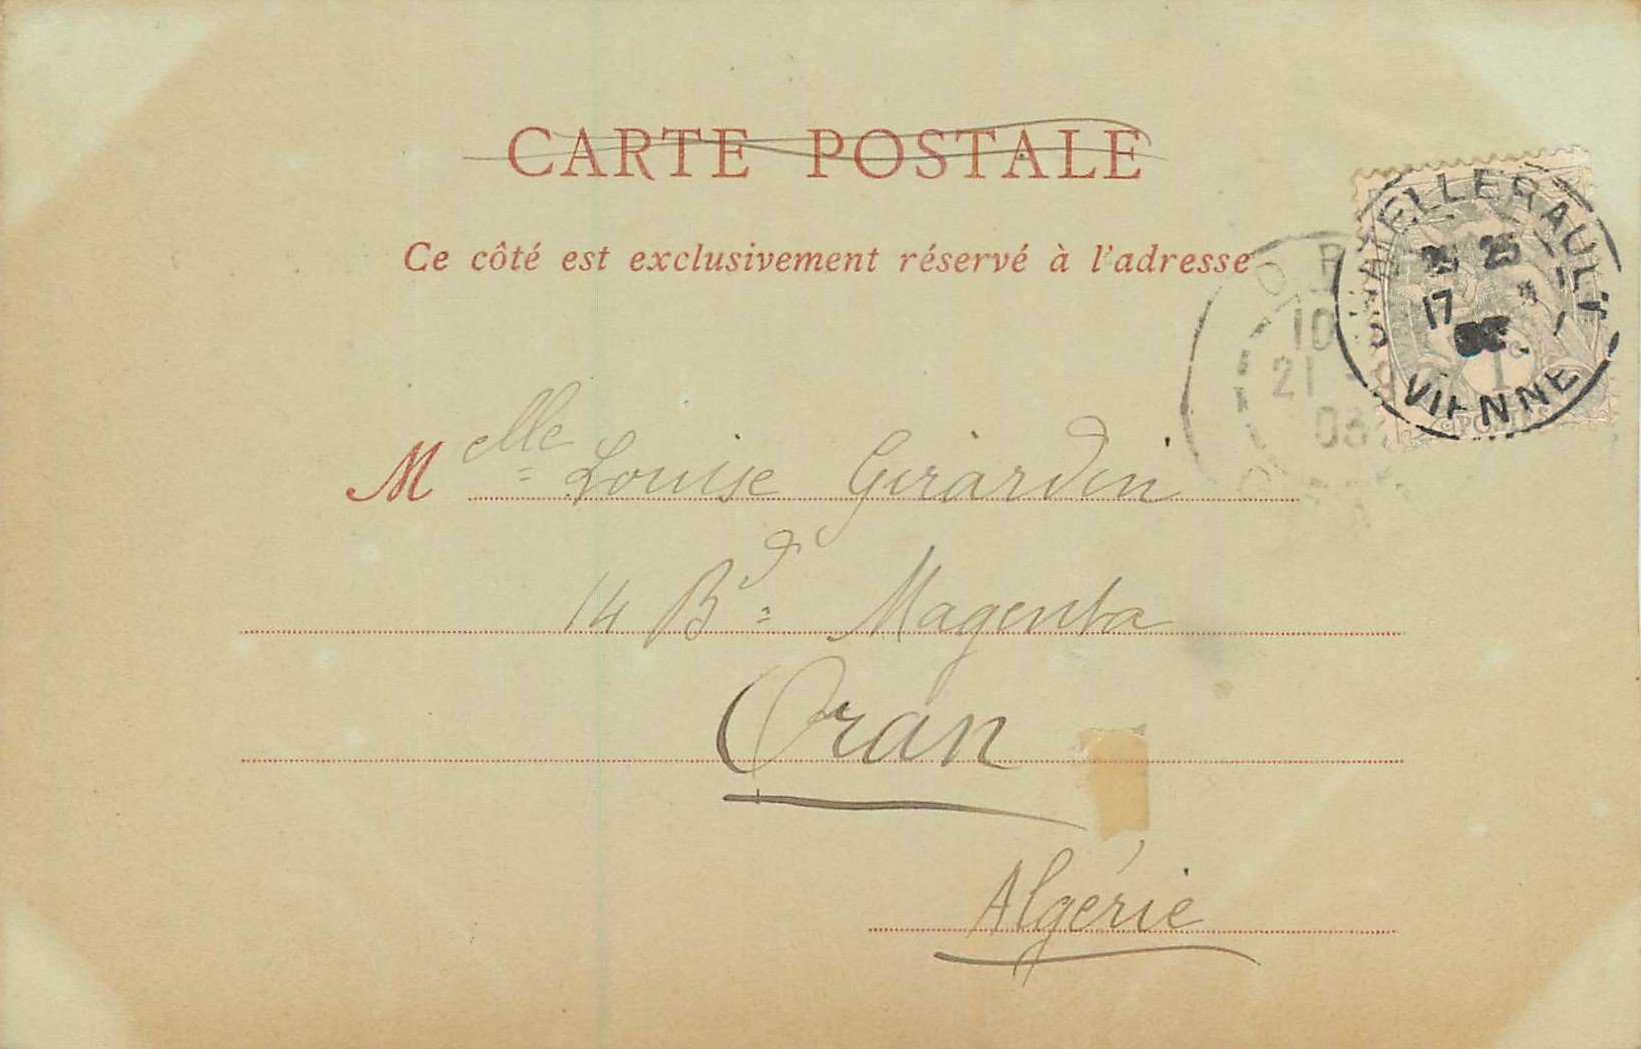 CARTE POSTALE
Ce côté est exclusivement réservé à l'adresse
CHATELLERAULT
25
17
VIENNE
1c
10
21
03
Melle Louise Girardin
14 Bd Magenta
Oran
Algérie